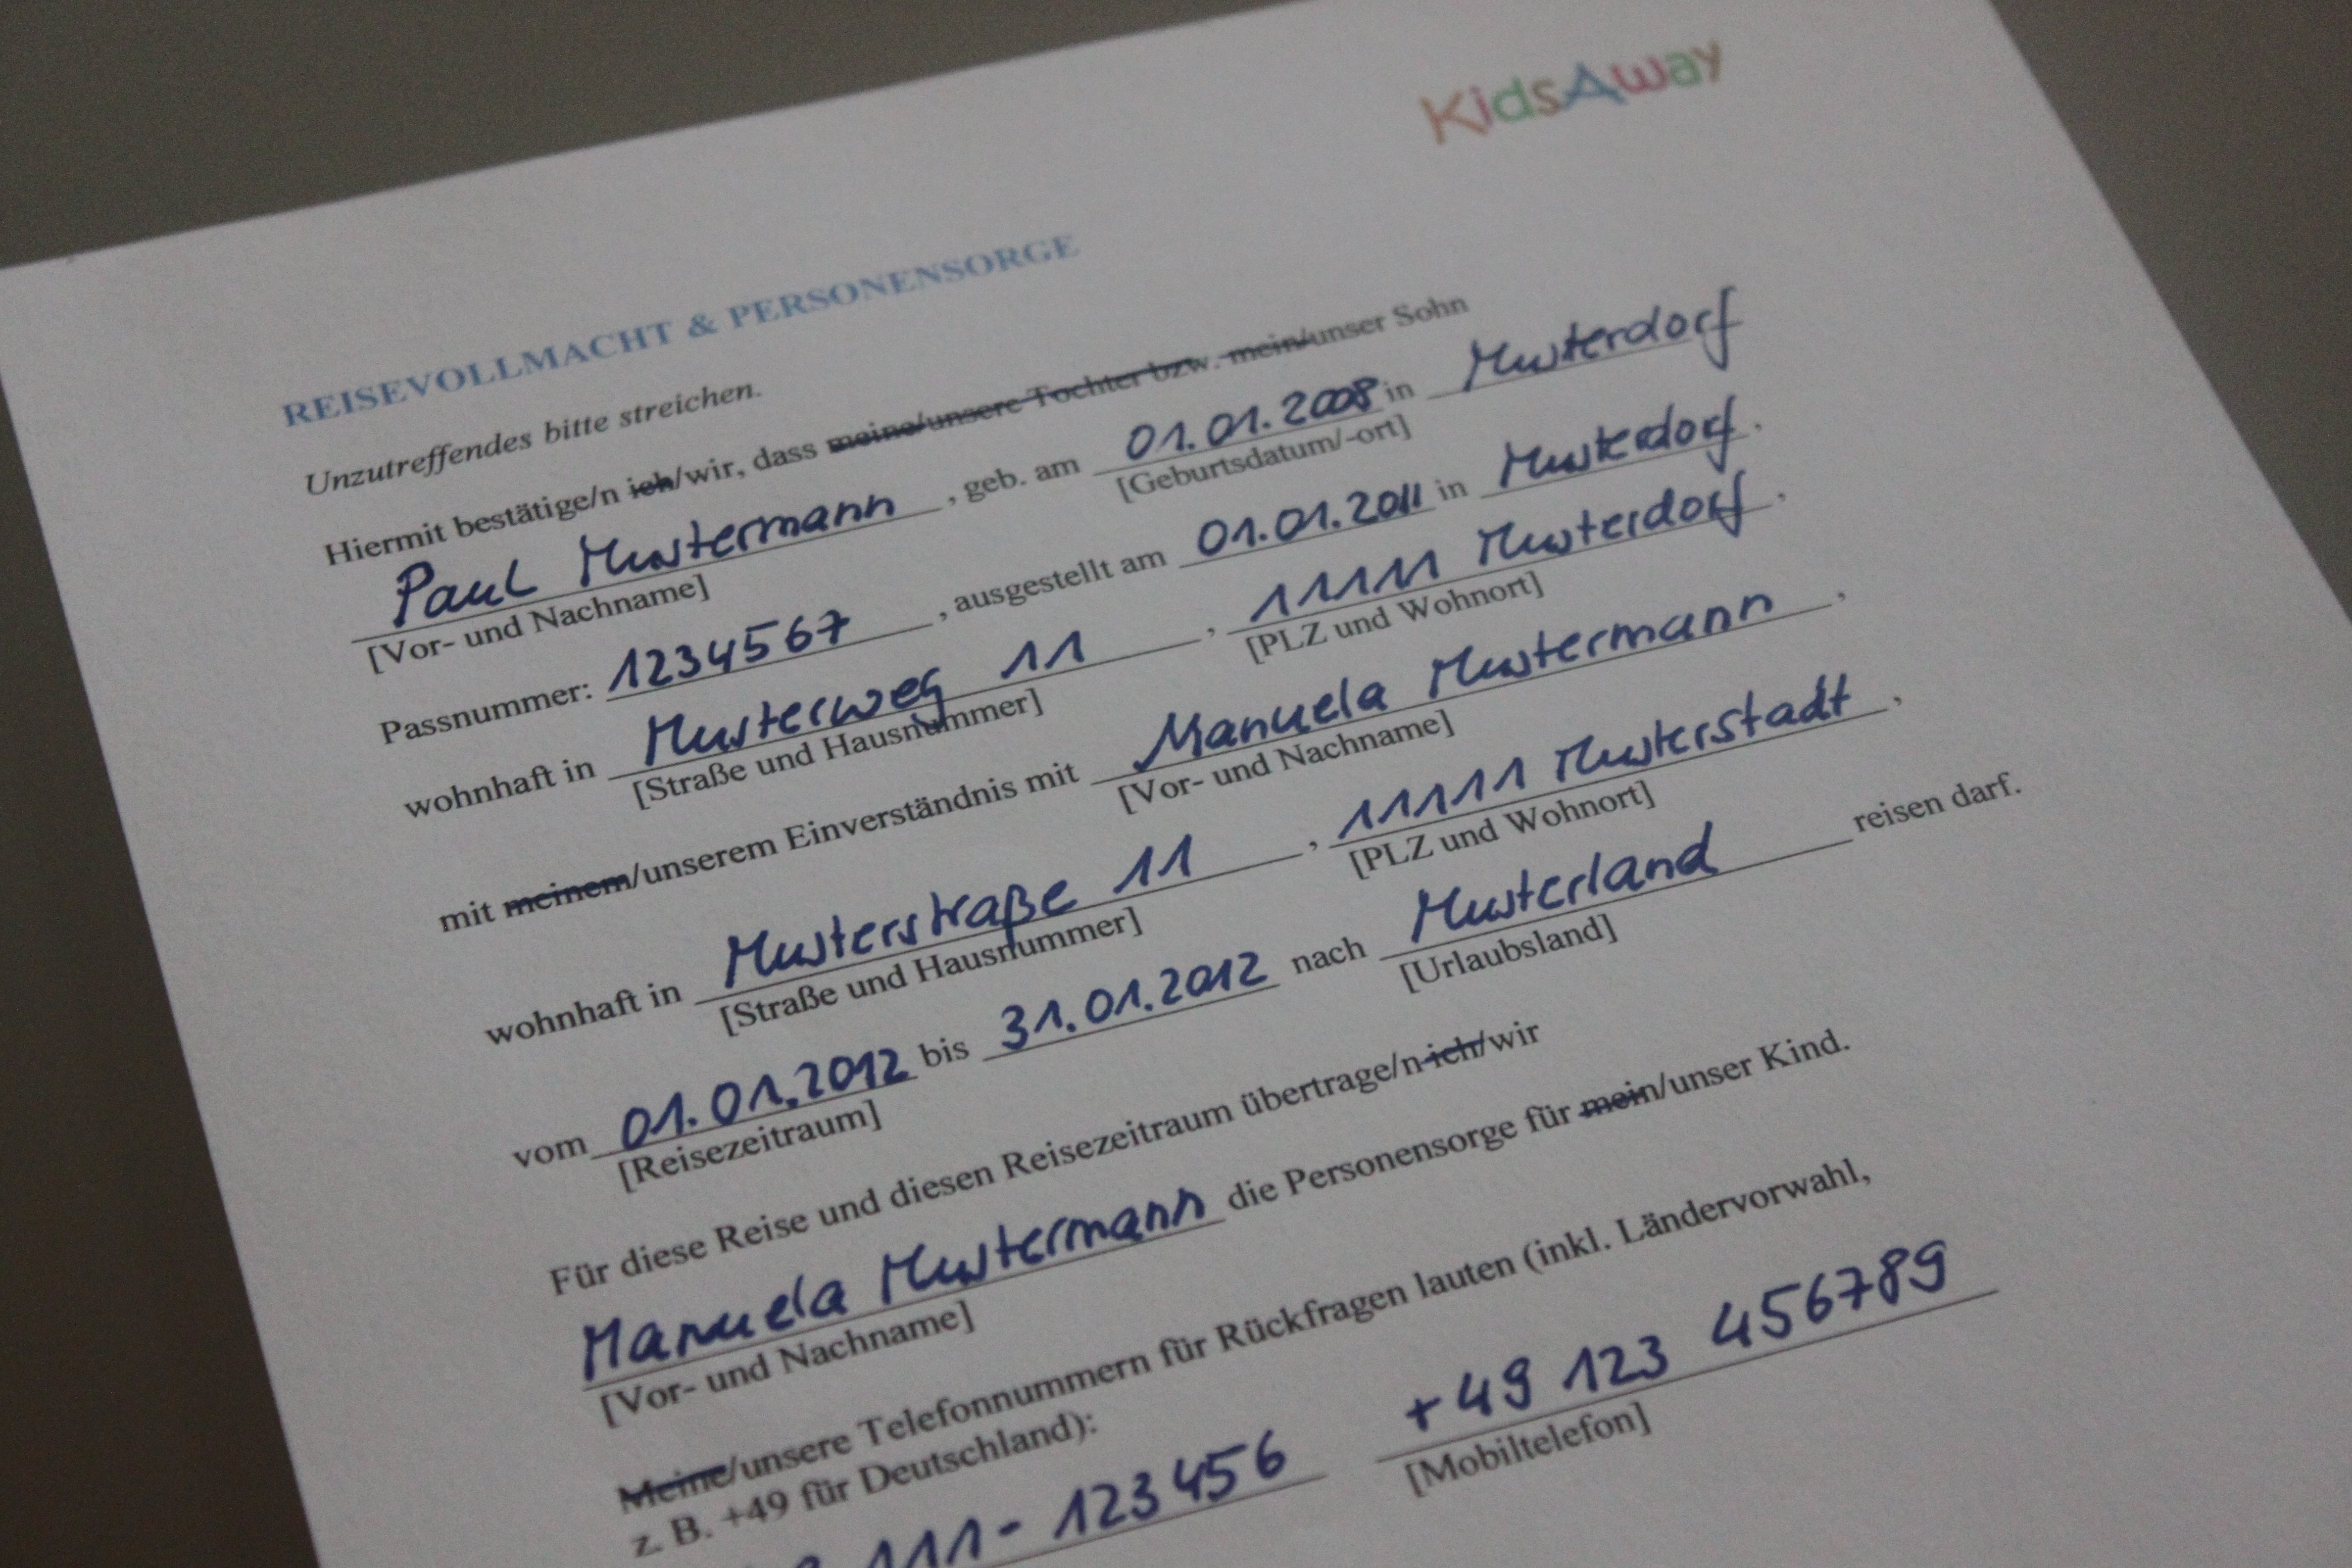 KidsAway
REISEVOLLMACHT & PERSONENSORGE
Unzutreffendes bitte streichen.
Hiermit bestätige/n ich/wir, dass meine/unsere Tochter bzw. mein/unser Sohn
Paul Mustermann, geb. am 01.01.2008 in Musterdorf
[Vor- und Nachname] [Geburtsdatum/-ort]
Passnummer: 1234567, ausgestellt am 01.01.2011 in Musterdorf,
wohnhaft in Musterweg 11, 11111 Musterdorf,
[Straße und Hausnummer] [PLZ und Wohnort]
mit meinem/unserem Einverständnis mit Manuela Mustermann,
[Vor- und Nachname]
wohnhaft in Musterstraße 11, 11111 Musterstadt,
[Straße und Hausnummer] [PLZ und Wohnort]
vom 01.01.2012 bis 31.01.2012 nach Musterland reisen darf.
[Reisezeitraum] [Urlaubsland]
Für diese Reise und diesen Reisezeitraum übertrage/n ich/wir
Manuela Mustermann die Personensorge für mein/unser Kind.
[Vor- und Nachname]
Meine/unsere Telefonnummern für Rückfragen lauten (inkl. Ländervorwahl,
z. B. +49 für Deutschland):
111-123456 +49 123 456789
[Mobiltelefon]